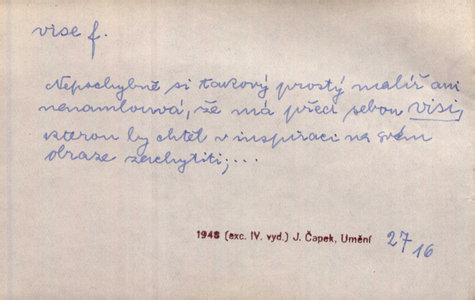 vise f.
Nepochybně si takový prostý malíř ani
nenamlouvá, že má před sebou visi,
kterou by chtěl v inspiraci na svém
obraze zachytiti;...
1948 (exc. IV. vyd.) J. Čapek, Umění
27
16